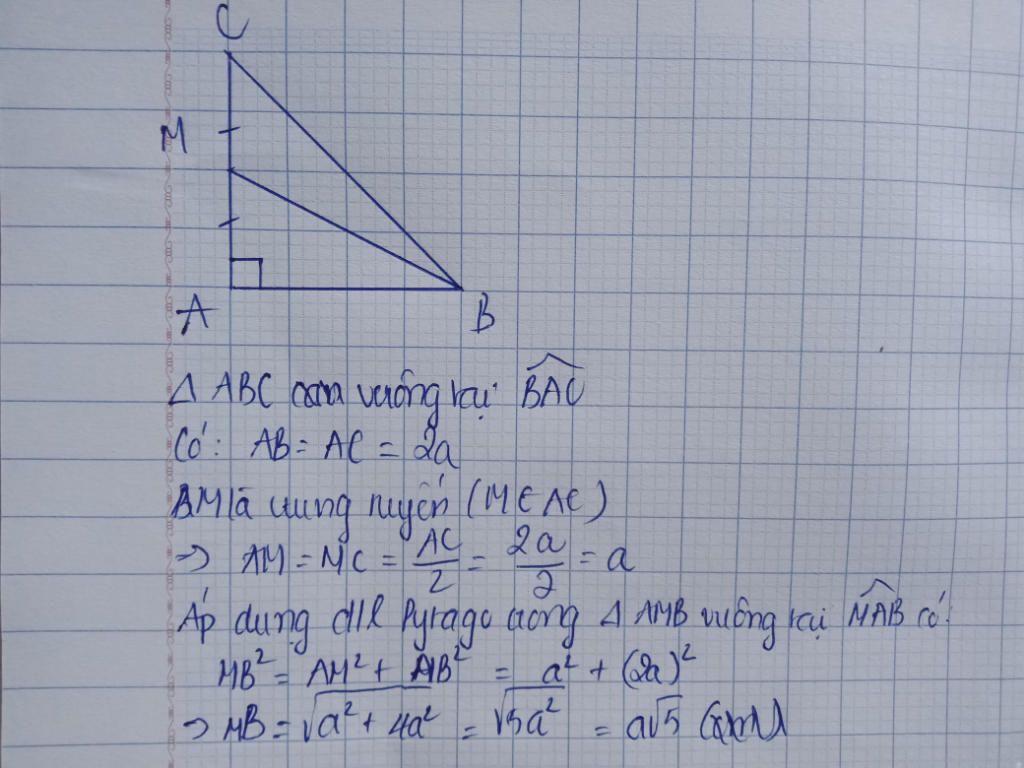 C
M
A
B
Δ ABC vuông tại BAC
Có: AB = AC = 2a
BM là trung tuyến (M ∈ AC)
=> AM = MC = AC/2 = 2a/2 = a
Áp dụng Pytago trong Δ AMB vuông tại MAB có:
MB² = AM² + AB² = a² + (2a)²
=> MB = √(a² + 4a²) = √(5a²) = a√5